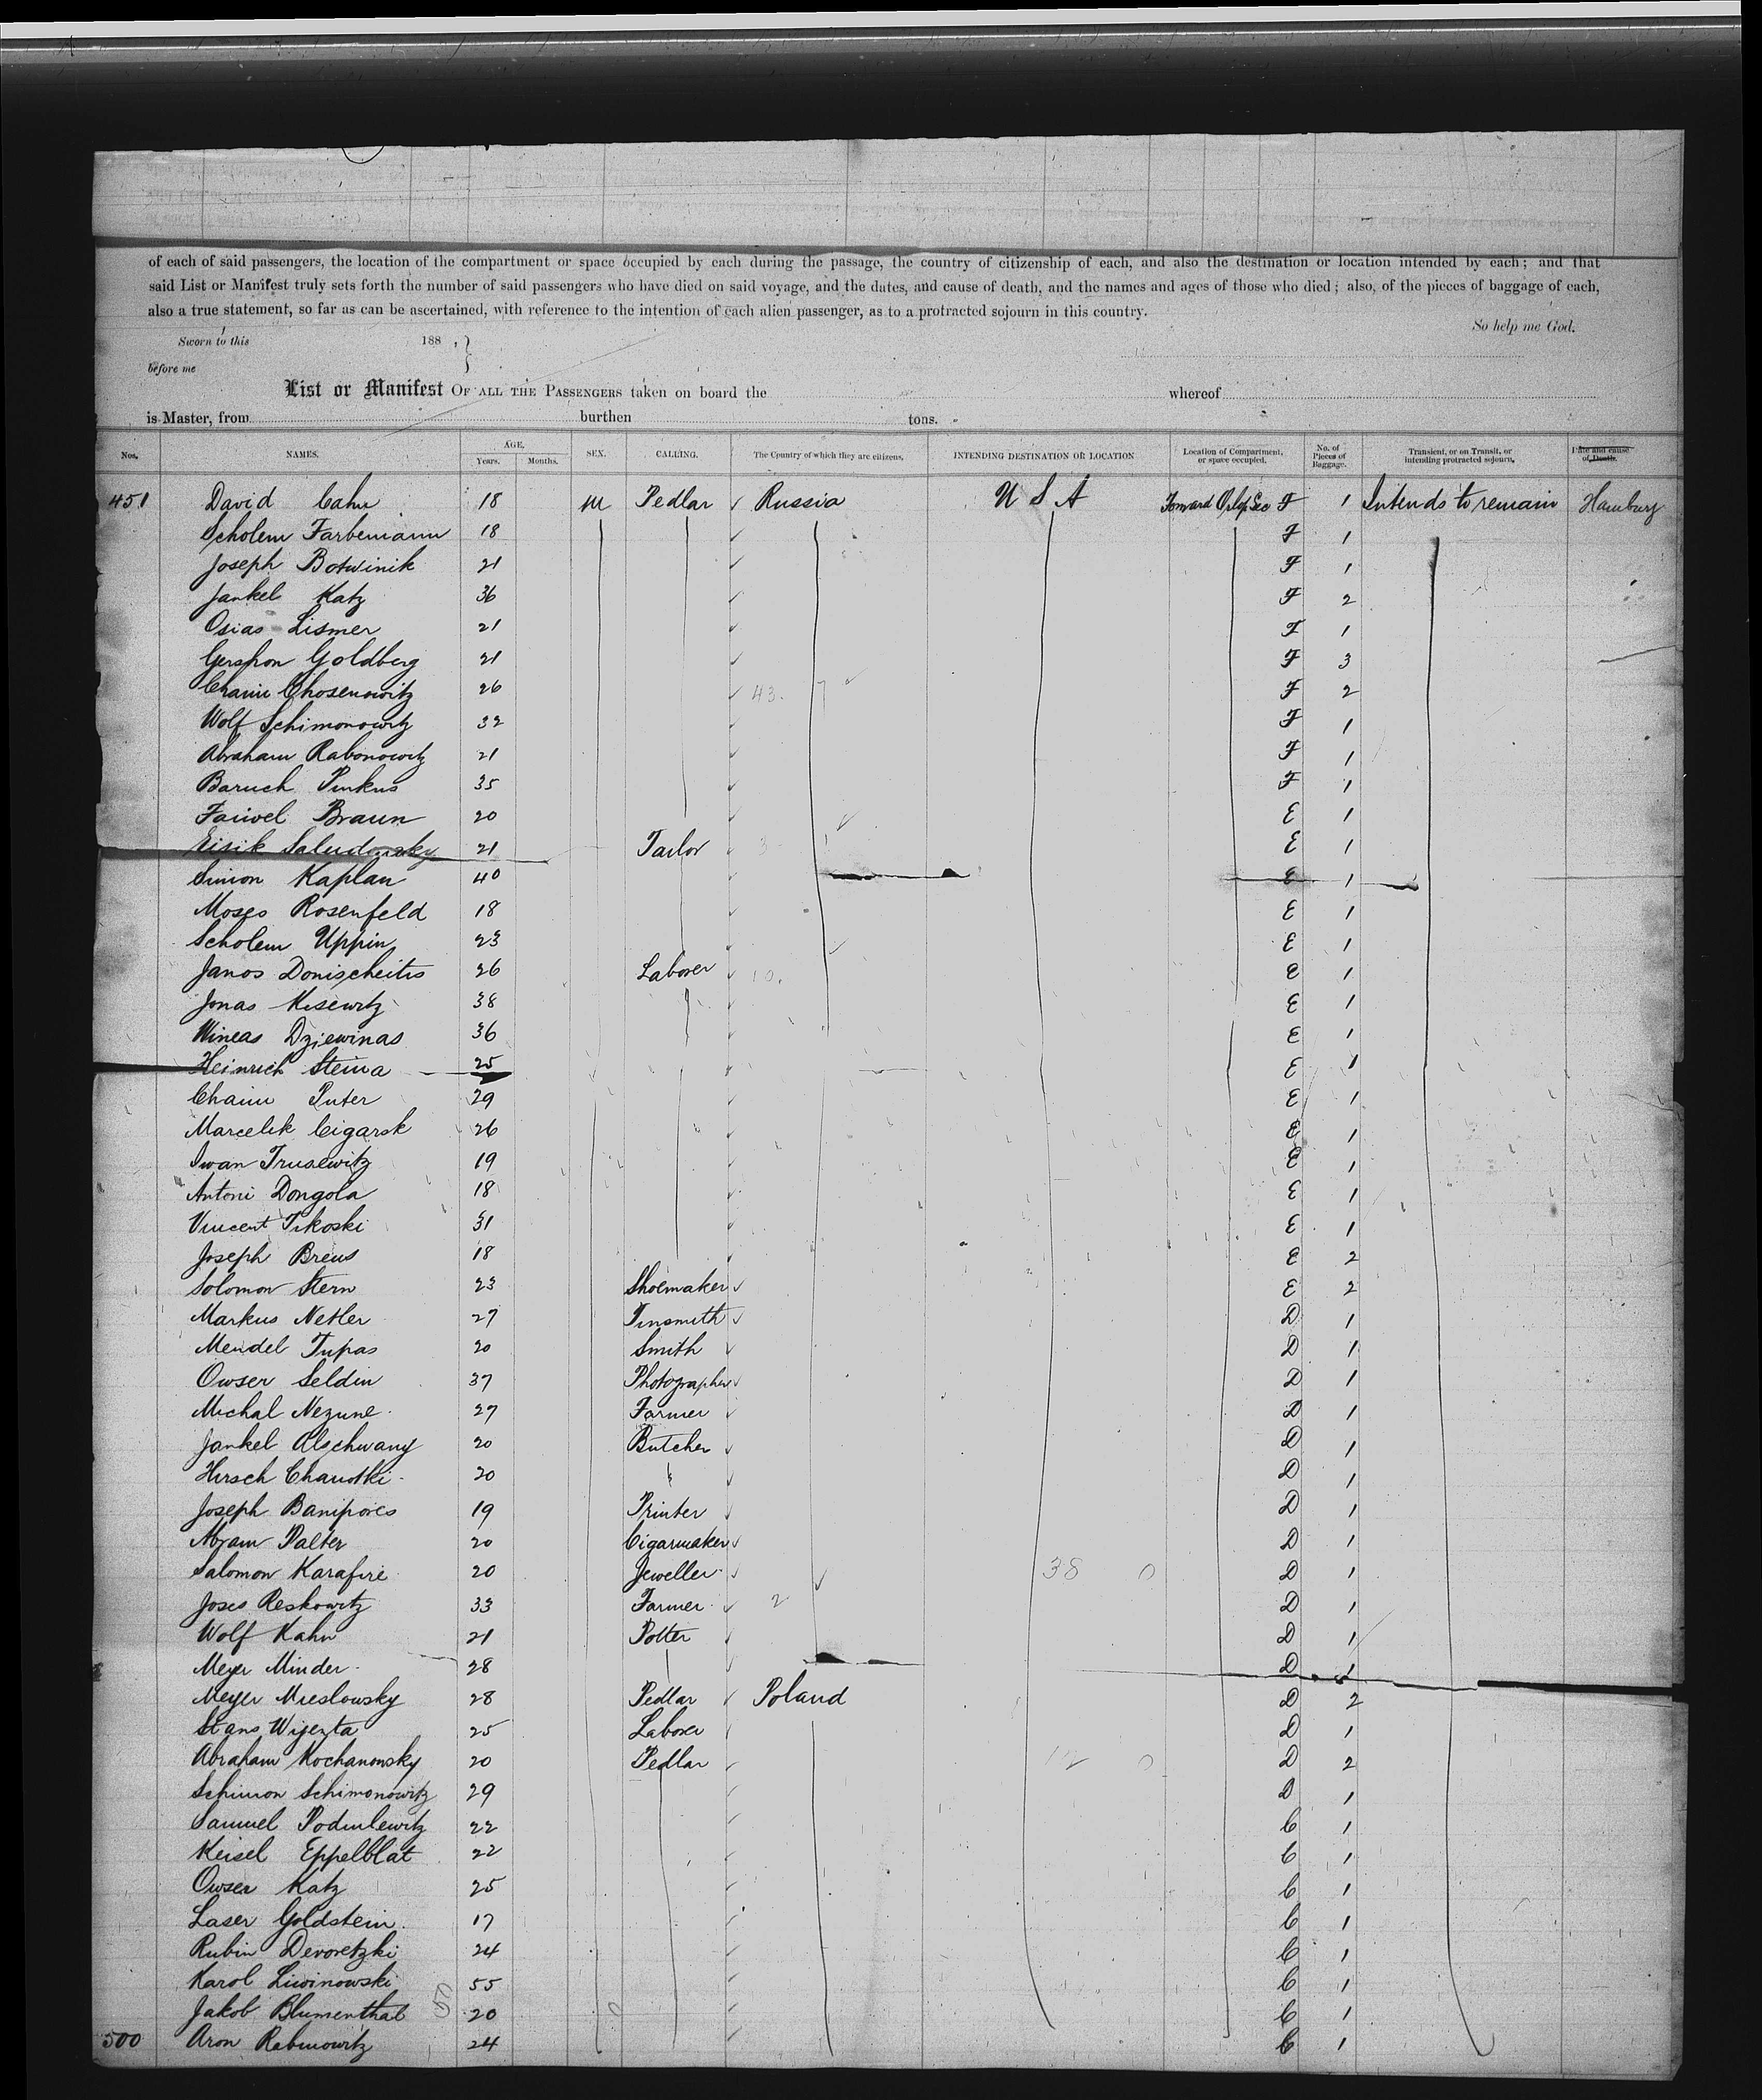 of each of said passengers, the location of the compartment or space occupied by each during the passage, the country of citizenship of each, and also the destination or location intended by each; and that
said List or Manifest truly sets forth the number of said passengers who have died on said voyage, and the dates, and cause of death, and the names and ages of those who died; also, of the pieces of baggage of each,
also a true statement, so far as can be ascertained, with reference to the intention of each alien passenger, as to a protracted sojourn in this country.
So help me God.
Sworn to this 188 , }
before me
List or Manifest OF ALL THE PASSENGERS taken on board the whereof
is Master, from burthen tons.
Nos. NAMES. AGE. Years. Months. SEX. CALLING. The Country of which they are citizens. INTENDING DESTINATION OR LOCATION Location of Compartment, or space occupied. No. of Pieces of Baggage. Transient, or on Transit, or intending protracted sojourn. Date and cause of Death.
451 David Cahn 18 M Pedlar Russia U S A Forward F 1 Intends to remain Hamburg
Scholem Farbemann 18 F 1
Joseph Botwinik 21 F 1
Jankel Katz 36 F 2
Osias Lismer 21 F 1
Gershon Goldberg 21 F 3
Chaim Chosenowitz 26 43. F 2
Wolf Schimonowitz 32 F 1
Abraham Rabonowitz 21 F 1
Baruch Pinkus 35 F 1
Faiwel Braun 20 E 1
Eisik 21 Tailor 3 E 1
Simon Kaplan 40 E 1
Moses Rosenfeld 18 E 1
Scholem Uppin 23 E 1
Janos Donischeitis 26 Laborer 10. E 1
Jonas Kisewitz 38 E 1
Mineas Dziewinas 36 E 1
Heinrich Steina 25 E 1
Chaim Puter 29 E 1
Marcelik Cigarsk 26 E 1
Iwan Trusewitz 19 E 1
Antoni Dongola 18 E 1
Vincent Tikoski 31 E 1
Joseph Breus 18 E 2
Solomon Stern 23 Shoemaker E 2
Markus Netler 27 Tinsmith D 1
Mendel Tupas 20 Smith D 1
Owser Seldin 37 Photographer D 1
Michal Nezune 27 Farmer D 1
Jankel Olschwang 20 Butcher D 1
Hirsch Chanotki 20 D 1
Joseph Banipores 19 Printer D 1
Abram Palter 20 Cigarmaker D 1
Salomon Karafire 20 Jeweller 38 0 D 1
Joses Reskowitz 33 Farmer 2 D 1
Wolf Kahn 21 Potter D 1
Meyer Minder 28 D 1
Meyer Mieslowsky 28 Pedlar Poland D 2
Stans Wijezta 25 Laborer D 1
Abraham Kochanowsky 20 Pedlar 12 0 D 2
Schimon Schimonowitz 29 D 1
Samuel Podmlewitz 22 C 1
Keisel Eppelblat 22 C 1
Owser Katz 25 C 1
Laser Goldstein 17 C 1
Rubin Devoretzki 24 C 1
Karol Liwinowski 55 C 1
Jakob Blumenthal 50 20 C 1
500 Aron Rabinowitz 24 C 1